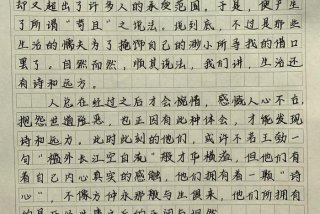 却又超出了许多人的承受范围,于是,便产生
了所谓“苟且”之说法。说到底,不过是那些
生活的懦夫为了掩饰自己的渺小所寻找的借口
罢了。自然而然,顺其说法,我们讲,生活还
有诗和远方。
人总在经过之后才会惋惜,感慨人心不古,
抱怨世道险恶,也正因有此种体会,才能发现
诗和远方。此时此刻的他们,或许不若王勃一
句“槛外长江空自流”般才华横溢,但他们有
着自己内心真实的感触,他们拥有着一颗“诗
心”,不像方仲永那般与生俱来,他们所拥有